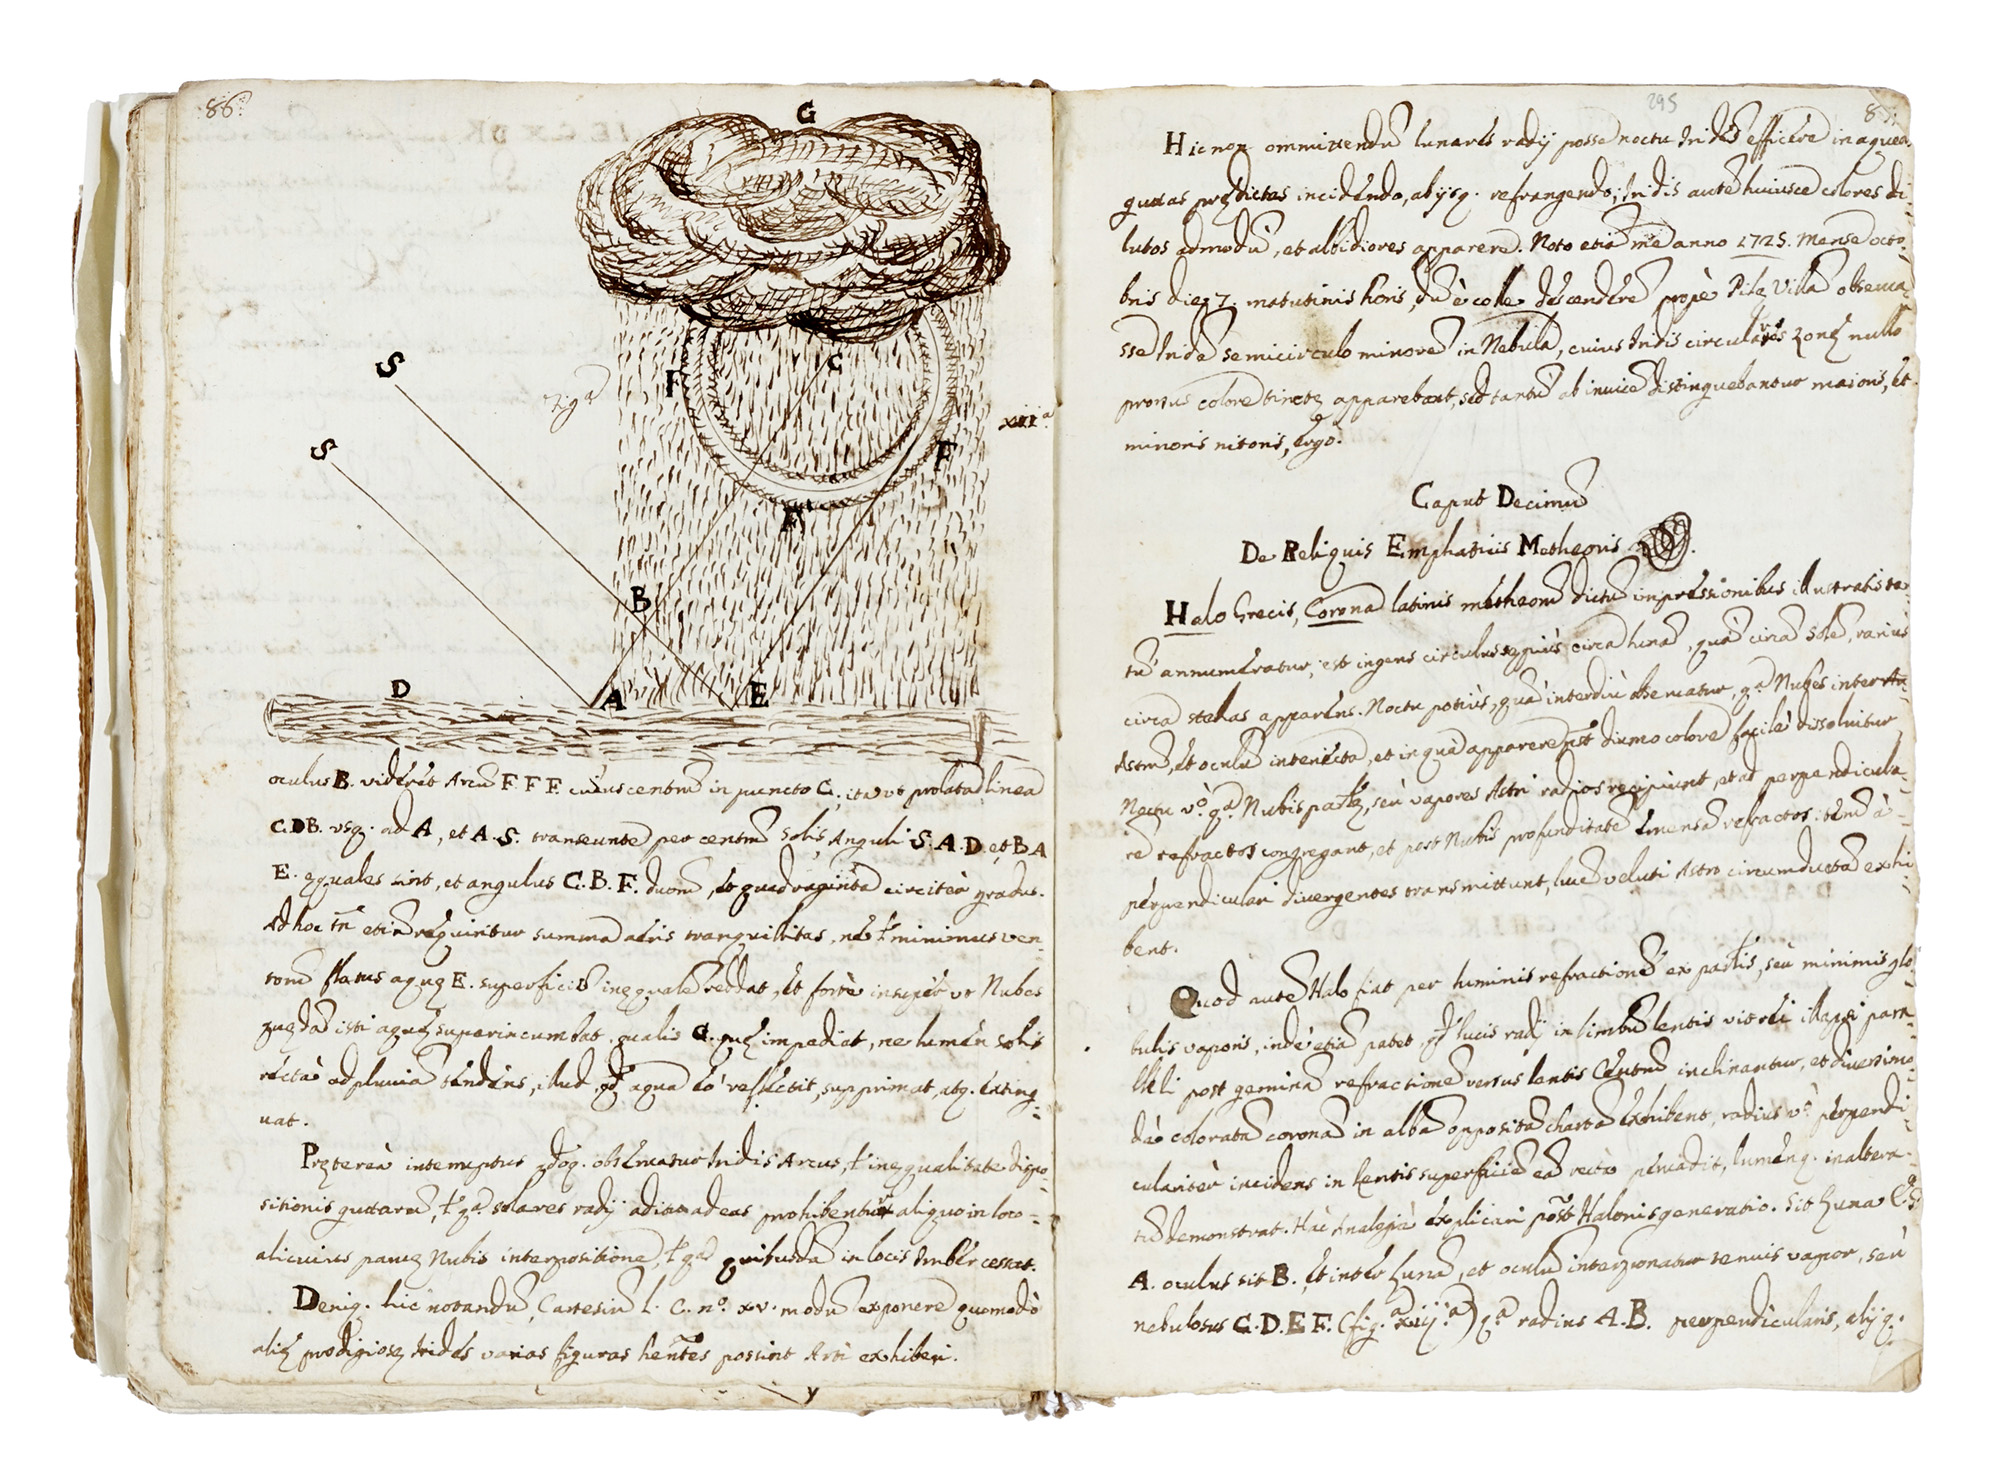 86.
G
S
S
F
C
Fig.ª
xiii.ª
F
F
B
D
A
E
oculus B. videret Arcũ F. F. F. cuius centrũ in puncto C, ita ut prolata linea
C.DB. usq. ad A, et A.S. transeunte per centrũ solis, Anguli S.A.D et BA
E. ęquales sint, et angulus C.B.F. duorũ, et quadraginta circiter graduũ.
Ad hoc tñ etiã requiritur summa aëris tranquillitas, ne t minimus ven-
torũ flatus aquę E. superficiẽ inęqualẽ reddat, et fortè insuper ut Nubes
quędã isti aquę superincumbat, qualis G. quę impediat, ne lumen solis
rectà ad pluviã tendens, illud, qd aqua eò reflectit, supprimat, atq. exting-
uat.
Pręterea interruptus qdoq. observatur Iridis Arcus, t inęqualitate dispo-
sitionis guttarũ, t qª solares radij aditu ad eas prohibentur aliquo in loco
alicuius parvę Nubis interpositione, t qª quibusdã in locis Imber cessat.
Deniq. hic notandũ, Cartesiũ l. c. nº. xv. modũ exponere quomodò
alię prodigiosę Irides varias figuras hentes possint Arti exhiberi.
295
Hic non ommittendũ lunares radij posse noctu Iridẽ efficere in aqueas
guttas prędictas incidendo, abijsq. refrangendo; Iridis autẽ huiusce colores di-
lutos admodũ, et albidiores apparere. Noto etiã me anno 1725. Mense octo-
bris die 27. matutinis horis, dũ è colle descenderẽ propè Pilę Villã observa-
sse Iridẽ semicirculo minorẽ in Nebula, cuius Iridis circulares zonę nullo
prorsus colore tinctę apparebant, sed tantũ ab invicẽ distinguebantur maioris, et
minoris nitoris, ergo.
Caput Decimũ
De Reliquis Emphaticis Metheoris
Halo Grecis, Corona latinis metheorũ dictũ impressionibus illustratis ta-
tũ annumeratur, est ingens circulus sępiùs circa lunã, quã circa Solẽ, rariùs
circa stellas apparens. Noctu potiùs, quã interdiù observatur, qª Nubes inter
Astrũ, et oculũ interiecta, et in qua apparere pst diurno colore facilè dissolvitur
Noctu vº. qª Nubis partes, seù vapores Astri radios recipiunt, et ad perpendicula-
re refractos congregant, et post Nubis profunditatẽ emensã refractos iterũ à
perpendiculari divergentes transmittunt, lucẽ veluti Astro circumductã exhi-
bent.
Quod autẽ Halo fiat per luminis refractionẽ ex partis, seù minimis glo-
bulis vaporis, inde etiã patet, qd lucis radij in limbũ lentis vitrei illapsi para-
lleli post geminã refractionẽ versùs lentis Centrũ inclinantur, et diversimo-
dè coloratã coronã in alba opposita charta exhibent, radius vº. perpendi-
culariter incidens in lentis superficiẽ eã rectà pervadit, lumenq. inaltera-
tũ demonstrat. Hac Analogia explicari pst Halonis generatio. Sit Luna
A. oculus sit B., et inter Lunã, et oculũ interponatur tenuis vapor, seù
nebulosus C.D.E.F. (fig.ª xiiij.ª) qª radius A.B. perpendicularis, alijq.